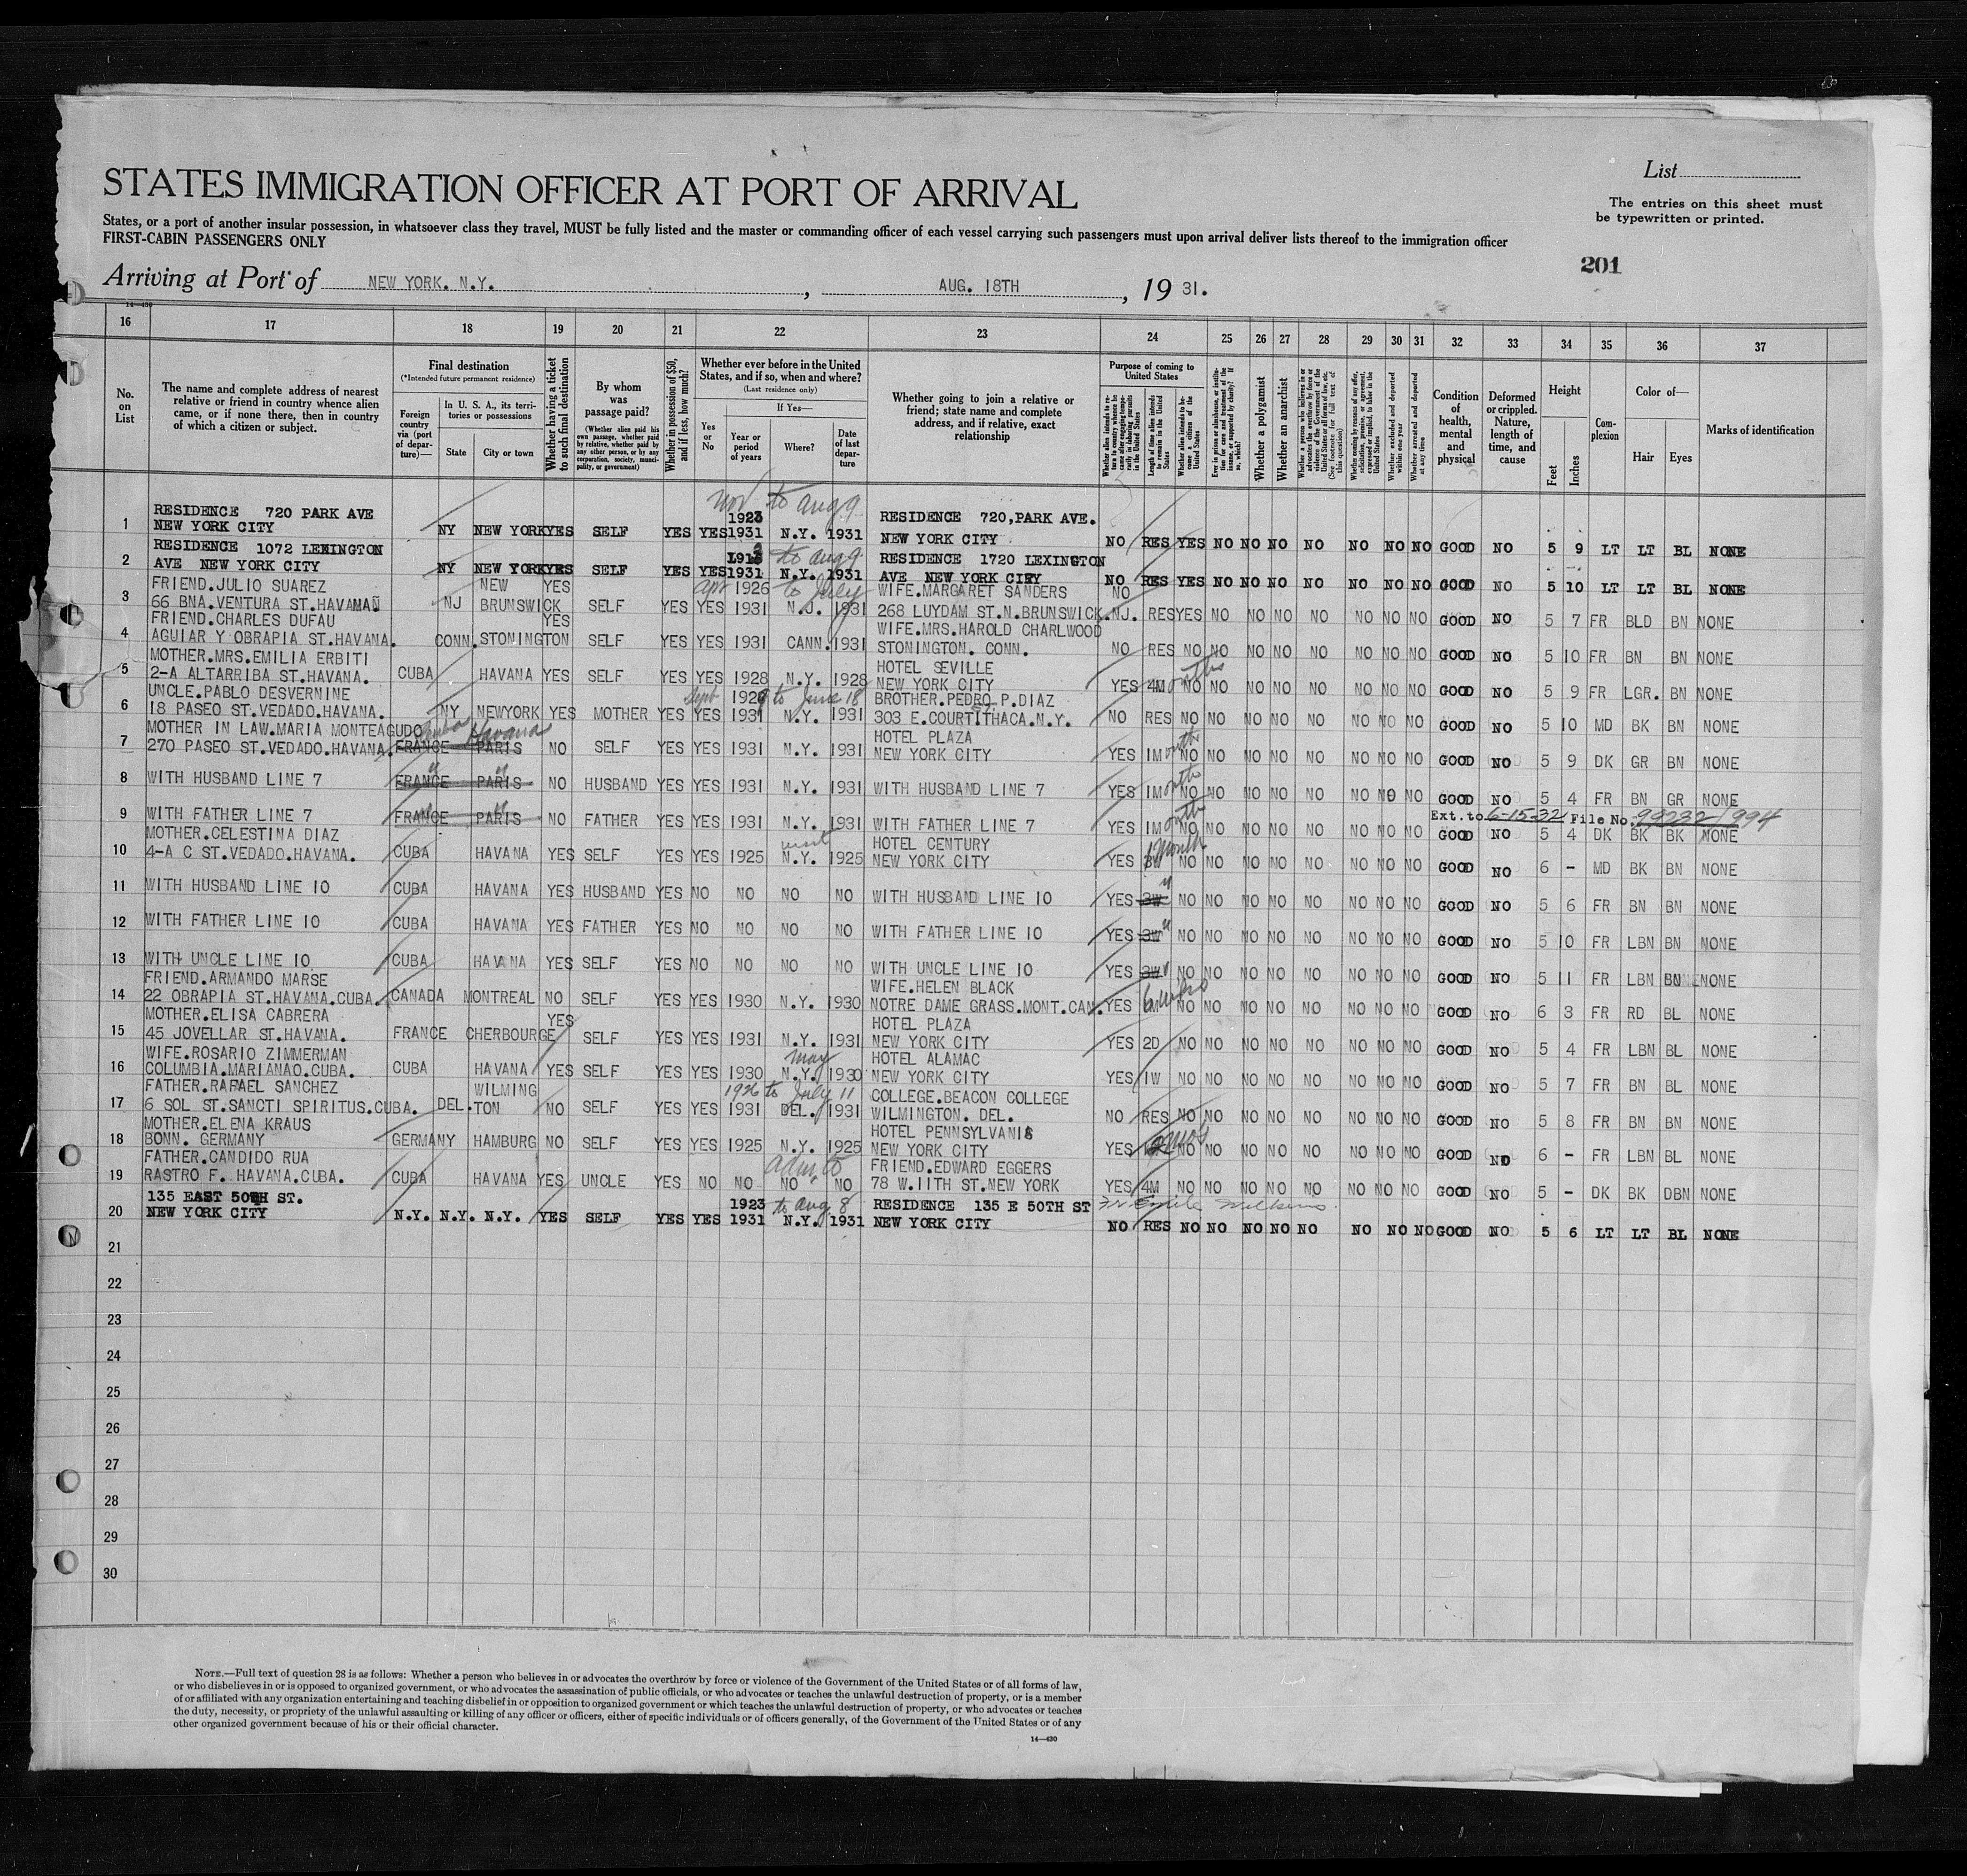 List
STATES IMMIGRATION OFFICER AT PORT OF ARRIVAL
The entries on this sheet must
be typewritten or printed.
States, or a port of another insular possession, in whatsoever class they travel, MUST be fully listed and the master or commanding officer of each vessel carrying such passengers must upon arrival deliver lists thereof to the immigration officer
FIRST-CABIN PASSENGERS ONLY
201
Arriving at Port of NEW YORK. N.Y. , AUG. 18TH , 19 31.
14—430
16 17 18 19 20 21 22 23 24 25 26 27 28 29 30 31 32 33 34 35 36 37
No. on List
The name and complete address of nearest relative or friend in country whence alien came, or if none there, then in country of which a citizen or subject.
Final destination
(*Intended future permanent residence)
Foreign country via (port of departure)—
In U. S. A., its territories or possessions
State City or town
Whether having a ticket to such final destination
By whom was passage paid?
(Whether alien paid his own passage, whether paid by relative, whether paid by any other person, or by any corporation, society, municipality, or government)
Whether in possession of $50, and if less, how much?
Whether ever before in the United States, and if so, when and where?
(Last residence only)
Yes or No
If Yes—
Year or period of years Where? Date of last departure
Whether going to join a relative or friend; state name and complete address, and if relative, exact relationship
Purpose of coming to United States
Whether alien intends to return to country whence he came after engaging temporarily in laboring pursuits in the United States
Length of time alien intends to remain in the United States
Whether alien intends to become a citizen of the United States
Ever in prison or almshouse, or institution for care and treatment of the insane, or supported by charity? If so, which?
Whether a polygamist
Whether an anarchist
Whether a person who believes in or advocates the overthrow by force or violence of the Government of the United States or all forms of law, etc. (See footnote for full text of this question)
Whether coming by reason of any offer, solicitation, promise, or agreement, expressed or implied, to labor in the United States
Whether excluded and deported within one year
Whether arrested and deported at any time
Condition of health, mental and physical
Deformed or crippled. Nature, length of time, and cause
Height
Feet Inches
Complexion
Color of—
Hair Eyes
Marks of identification
Nov to Aug 9
RESIDENCE 720 PARK AVE 1923 RESIDENCE 720,PARK AVE.
1 NEW YORK CITY NY NEW YORK YES SELF YES YES 1931 N.Y. 1931 NEW YORK CITY NO RES YES NO NO NO NO NO NO NO GOOD NO 5 9 LT LT BL NONE
RESIDENCE 1072 LEXINGTON to Aug 9 RESIDENCE 1720 LEXINGTON
2 AVE NEW YORK CITY NY NEW YORK YES SELF YES YES 1931 N.Y. 1931 AVE NEW YORK CITY NO RES YES NO NO NO NO NO NO NO GOOD NO 5 10 LT LT BL NONE
FRIEND.JULIO SUAREZ NEW YES Apr 1926 to July WIFE.MARGARET SANDERS NO
3 66 BNA.VENTURA ST.HAVANA NJ BRUNSWICK SELF YES YES 1931 N.J. 1931 268 LUYDAM ST.N.BRUNSWICK.NJ. RES YES NO NO NO NO NO NO NO GOOD NO 5 7 FR BLD BN NONE
FRIEND.CHARLES DUFAU YES WIFE.MRS.HAROLD CHARLWOOD
4 AGUIAR Y OBRAPIA ST.HAVANA. CONN. STONINGTON SELF YES YES 1931 CANN. 1931 STONINGTON. CONN. NO RES NO NO NO NO NO NO NO NO GOOD NO 5 10 FR BN BN NONE
MOTHER.MRS.EMILIA ERBITI HOTEL SEVILLE
5 2-A ALTARRIBA ST.HAVANA. CUBA HAVANA YES SELF YES YES 1928 N.Y. 1928 NEW YORK CITY YES 4Months NO NO NO NO NO NO NO NO GOOD NO 5 9 FR LGR. BN NONE
UNCLE.PABLO DESVERNINE Sept 1928 to June 18 BROTHER.PEDRO P.DIAZ
6 18 PASEO ST.VEDADO.HAVANA. NY NEWYORK YES MOTHER YES YES 1931 N.Y. 1931 303 E.COURT ST. ITHACA.N.Y. NO RES NO NO NO NO NO NO NO NO GOOD NO 5 10 MD BK BN NONE
MOTHER IN LAW.MARIA MONTEAGUDO Cuba Havana HOTEL PLAZA
7 270 PASEO ST.VEDADO.HAVANA. FRANCE PARIS NO SELF YES YES 1931 N.Y. 1931 NEW YORK CITY YES 1Month NO NO NO NO NO NO NO NO GOOD NO 5 9 DK GR BN NONE
8 WITH HUSBAND LINE 7 FRANCE PARIS NO HUSBAND YES YES 1931 N.Y. 1931 WITH HUSBAND LINE 7 YES 1Month NO NO NO NO NO NO NO NO GOOD NO 5 4 FR BN GR NONE
Ext. to 6-15-32 File No. 99232/994
9 WITH FATHER LINE 7 FRANCE PARIS NO FATHER YES YES 1931 N.Y. 1931 WITH FATHER LINE 7 YES 1Month NO NO NO NO NO NO NO NO GOOD NO 5 4 DK BK BK NONE
MOTHER.CELESTINA DIAZ visit HOTEL CENTURY 1 Month
10 4-A C ST.VEDADO.HAVANA. CUBA HAVANA YES SELF YES YES 1925 N.Y. 1925 NEW YORK CITY YES 3W NO NO NO NO NO NO NO NO GOOD NO 6 - MD BK BN NONE
11 WITH HUSBAND LINE 10 CUBA HAVANA YES HUSBAND YES NO NO NO NO WITH HUSBAND LINE 10 YES 3W " NO NO NO NO NO NO NO NO GOOD NO 5 6 FR BN BN NONE
12 WITH FATHER LINE 10 CUBA HAVANA YES FATHER YES NO NO NO NO WITH FATHER LINE 10 YES 3W " NO NO NO NO NO NO NO NO GOOD NO 5 10 FR LBN BN NONE
13 WITH UNCLE LINE 10 CUBA HAVANA YES SELF YES NO NO NO NO WITH UNCLE LINE 10 YES 3W NO NO NO NO NO NO NO NO GOOD NO 5 11 FR LBN BN NONE
FRIEND.ARMANDO MARSE WIFE.HELEN BLACK
14 22 OBRAPIA ST.HAVANA.CUBA. CANADA MONTREAL NO SELF YES YES 1930 N.Y. 1930 NOTRE DAME GRASS.MONT.CAN. YES NO NO NO NO NO NO NO NO GOOD NO 6 3 FR RD BL NONE
MOTHER.ELISA CABRERA YES HOTEL PLAZA
15 45 JOVELLAR ST.HAVANA. FRANCE CHERBOURGE SELF YES YES 1931 N.Y. 1931 NEW YORK CITY YES 2D NO NO NO NO NO NO NO NO GOOD NO 5 4 FR LBN BL NONE
WIFE.ROSARIO ZIMMERMAN May HOTEL ALAMAC
16 COLUMBIA.MARIANAO.CUBA. CUBA HAVANA YES SELF YES YES 1930 N.Y. 1930 NEW YORK CITY YES 1W NO NO NO NO NO NO NO NO GOOD NO 5 7 FR BN BL NONE
FATHER.RAFAEL SANCHEZ WILMING 1926 to July 11 COLLEGE.BEACON COLLEGE
17 6 SOL ST.SANCTI SPIRITUS.CUBA. DEL. TON NO SELF YES YES 1931 DEL. 1931 WILMINGTON. DEL. NO RES NO NO NO NO NO NO NO NO GOOD NO 5 8 FR BN BN NONE
MOTHER.ELENA KRAUS HOTEL PENNSYLVANIA
18 BONN. GERMANY GERMANY HAMBURG NO SELF YES YES 1925 N.Y. 1925 NEW YORK CITY YES NO NO NO NO NO NO NO NO GOOD NO 6 - FR LBN BL NONE
FATHER.CANDIDO RUA FRIEND.EDWARD EGGERS
19 RASTRO F. HAVANA.CUBA. CUBA HAVANA YES UNCLE YES NO NO NO NO 78 W.11TH ST.NEW YORK YES 4M NO NO NO NO NO NO NO NO GOOD NO 5 - DK BK DBN NONE
135 EAST 50TH ST. 1923 to Aug 8 RESIDENCE 135 E 50TH ST
20 NEW YORK CITY N.Y. N.Y. N.Y. YES SELF YES YES 1931 N.Y. 1931 NEW YORK CITY NO RES NO NO NO NO NO NO NO NO GOOD NO 5 6 LT LT BL NONE
21
22
23
24
25
26
27
28
29
30
NOTE.—Full text of question 28 is as follows: Whether a person who believes in or advocates the overthrow by force or violence of the Government of the United States or of all forms of law,
or who disbelieves in or is opposed to organized government, or who advocates the assassination of public officials, or who advocates or teaches the unlawful destruction of property, or is a member
of or affiliated with any organization entertaining and teaching disbelief in or opposition to organized government or which teaches the unlawful destruction of property, or who advocates or teaches
the duty, necessity, or propriety of the unlawful assaulting or killing of any officer or officers, either of specific individuals or of officers generally, of the Government of the United States or of any
other organized government because of his or their official character.
14—430